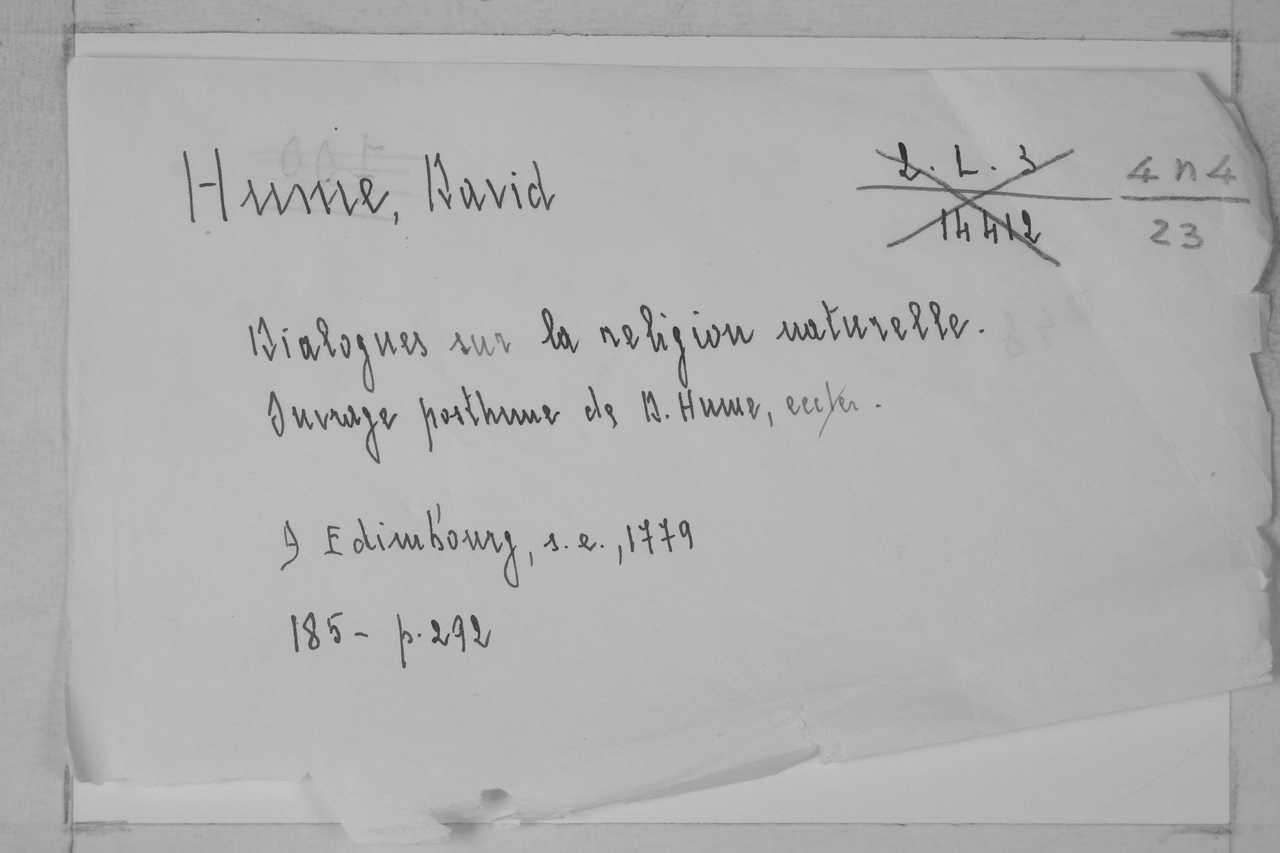 Hume, David
2. L. 3
14412
4 n 4
23
Dialogues sur la religion naturelle.
Ouvrage posthume de D. Hume,
A Edimbourg, s.e., 1779
185- p. 292